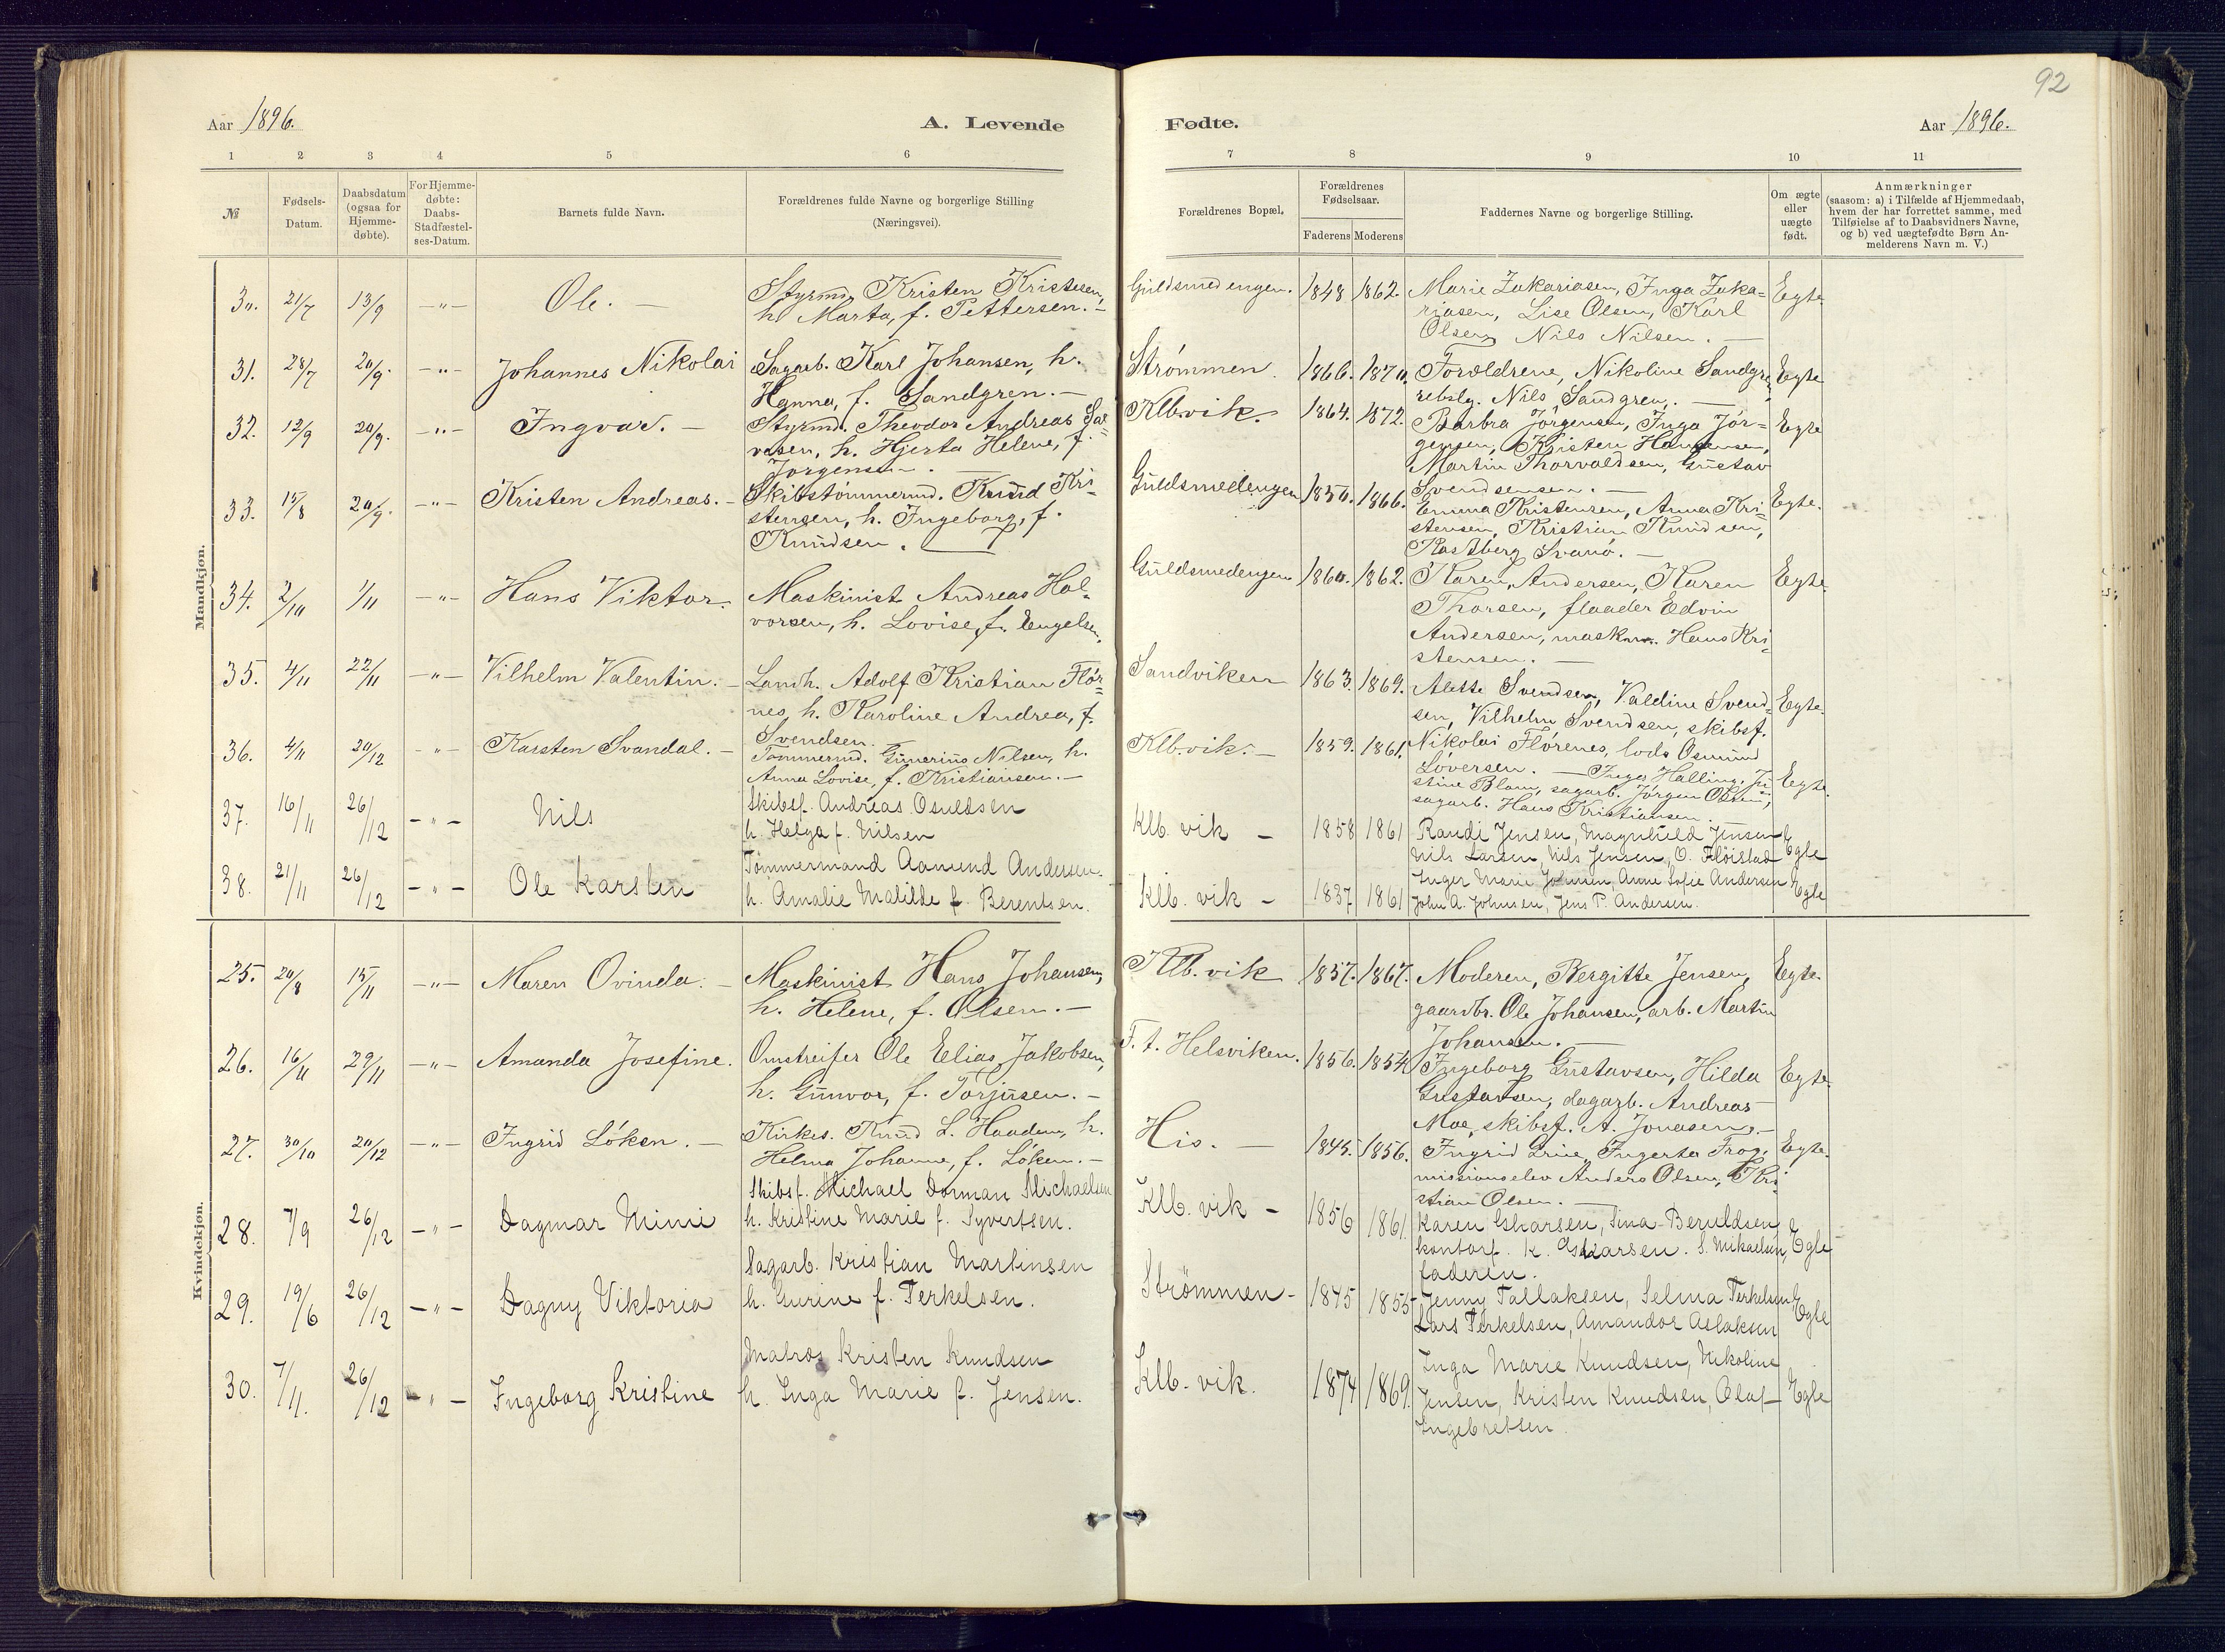 92
Aar 1896. A. Levende Fødte. Aar 1896.
1 2 3 4 5 6 7 8 9 10 11
№
Fødsels-
Datum.
Daabsdatum
(ogsaa for
Hjemme-
døbte).
For Hjemme-
døbte:
Daabs-
Stadfæstel-
ses-Datum.
Barnets fulde Navn.
Forældrenes fulde Navne og borgerlige Stilling
(Næringsvei).
Forældrenes Bopæl.
Forældrenes
Fødselsaar.
Faderens Moderens
Faddernes Navne og borgerlige Stilling.
Om ægte
eller
uægte
født.
Anmærkninger
(saasom: a) i Tilfælde af Hjemmedaab,
hvem der har forrettet samme, med
Tilføielse af to Daabsvidners Navne,
og b) ved uægtefødte Børn An-
melderens Navn m. V.)
Mandkjøn.
30. 21/7 13/9 -"- Ole. –
Styrmd. Kristen Kristesen,
h. Marta, f. Pettersen. –
Guldsmedengen. 1848 1862.
Marie Zakariasen, Inga Zaka=
riasen, Lise Olsen, Karl
Olsen, Nils Nilsen. –
Egte.
31. 28/7 20/9. -"- Johannes Nikolai
Sagarb. Karl Johansen, h.
Hanna, f. Sandgren. –
Strømmen. 1866. 1870.
Forældrene, Nikoline Sandgre
rebslg. Nils Sandgren. –
Egte
32. 12/9 20/9. -"- Ingvar. –
Styrmd. Theodor Andreas Sal=
vesen, h. Hjerta Helene, f.
Jørgensen. –
Klb.vik. 1864. 1872.
Barbra Jørgensen, Inga Jør=
gensen, Kristen Hansensen,
Martin Thorvaldsen, Gustav
Svendsensen. –
Egte
33. 15/8 20/9. -"- Kristen Andreas. –
Skibstømmermd. Knud Kri-
stensen, h. Ingeborg, f.
Knudsen. –
Guldsmedengen 1850. 1866.
Emma Kristensen, Anna Kri-
stensen, Kristian Knudsen,
Svanø. –
Egte.
34. 2/10 1/11 -"- Hans Viktor.
Maskinist Andreas Hal-
vorsen, h. Lovise, f. Engelsen.
Guldsmedengen 1860. 1862.
Karen Andersen, Karen
Thorsen, flaader Edvin
Andersen, maskn. Hans Kri-
stensen. –
Egte.
35. 4/11 22/11 -"- Vilhelm Valentin. –
Landh. Adolf Kristian Flör-
nes, h. Karoline Andrea, f.
Svendsen.
Sandviken 1863. 1869.
Alette Svendsen, Valdine Svend-
sen, Vilhelm Svendsen, skibsf.
Nikolai Flörenes, lods Osmund
Löversen. –
Egte.
36. 4/11 20/12 -"- Karsten Svandal. –
Tömmermd. Gunerius Nilsen, h.
Anna Lovise, f. Kristiansen. –
Klb.vik. – 1859. 1861.
Inger Halling, Ju
stine Blom, sagarb. Jörgen Olsen,
sagarb. Hans Kristiansen.
Egte.
37. 16/11 26/12 -"- Nils
Skibsf. Andreas Osuldsen
h. Helga f. Nilsen
Klb. vik – 1858 1861
Randi Jensen, Magnhild Jensen
Nils Larsen, Nils Jensen, O. Flöistad
Egte
38. 21/11 26/12 -"- Ole Karsten
Tömmermand Aamund Andersen.
h. Amalie Matilde f. Berentsen.
Klb. vik – 1837 1861
Inger Marie Johnsen, Anne Sofie Andersen
John A. Johnsen, Jens P. Andersen.
Egte
Kvindekjøn.
25. 20/8 15/11 -"- Maren Ovinda. –
Maskinist Hans Johansen,
h. Helene, f. Olsen. –
Klb. vik 1857. 1867.
Moderen, Bergitte Jensen,
gaardbr. Ole Johansen, arb. Martin
Johansen. –
Egte.
26. 16/11 29/11 -"- Amanda Josefine.
Omstreifer Ole Elias Jakobsen,
h. Gunvor, f. Torjusen. –
F. t. Helsviken. 1856. 1854
Ingeborg Gustavsen, Hilda
Gustavsen, dagarb. Andreas
Moe, skibsf. A. Jonasen. –
Egte.
27. 30/10 20/12 -"- Ingrid Löken. –
Kirkes. Knud L. Haadem, h.
Helma Johanne, f. Löken. –
His. – 1845. 1856.
Ingrid Grine, Ingerta Frog,
missionselev Anders Olsen, Kri-
stian Olsen. –
Egte.
28. 7/9 26/12 -"- Dagmar Mimi
Skibsf. Michael Dorman Michaelsen
h. Kristine Marie f. Syvertsen.
Klb. vik – 1856 1861.
Karen Oskarsen, Tina Beruldsen
kontorf. K. Oskarsen. S. Mikaelsen,
faderen.
Egte
29. 19/6 26/12 -"- Dagny Viktoria
Sagarb. Kristian Martinsen
h. Gurine f. Terkelsen.
Strömmen – 1845 1855
Jenny Tallaksen, Selma Terkelsen,
Lars Terkelsen, Amandor Aslaksen
Egte
30. 7/11. 26/12 -"- Ingeborg Kristine
Matros Kristen Knudsen
h. Inga Marie f. Jensen.
Klb. vik. 1874 1869.
Inga Marie Knudsen, Nikoline
Jensen, Kristen Knudsen, Olaf
Ingebretsen.
Egte